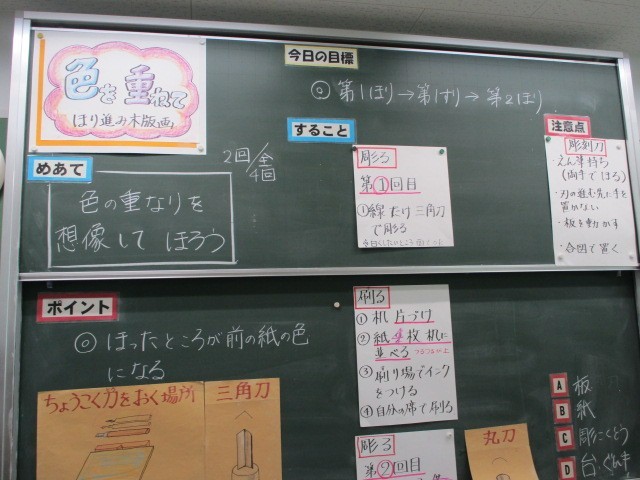 色を重ねて
ほり進み木版画
今日の目標
◎ 第1ほり→第1すり→第2ほり
めあて
2回/全4回
色の重なりを
想像して ほろう
すること
彫る
第①回目
①線だけ三角刀
で彫る
注意点
彫刻刀
・えん筆持ち
(両手でほる)
・刃の進む先に手を
置かない
・板を動かす
・合図で置く
ポイント
◎ ほったところが前の紙の色
になる
刷る
① 机片づけ
② 紙4枚机に
並べる つるつるが上
③ 刷り場でインク
をつける
④ 自分の席で刷る
彫る
第②回目
ちょうこく刀をおく場所
三角刀
丸刀
A 板
B 紙
C 彫こくとう
D 台・ぐんき